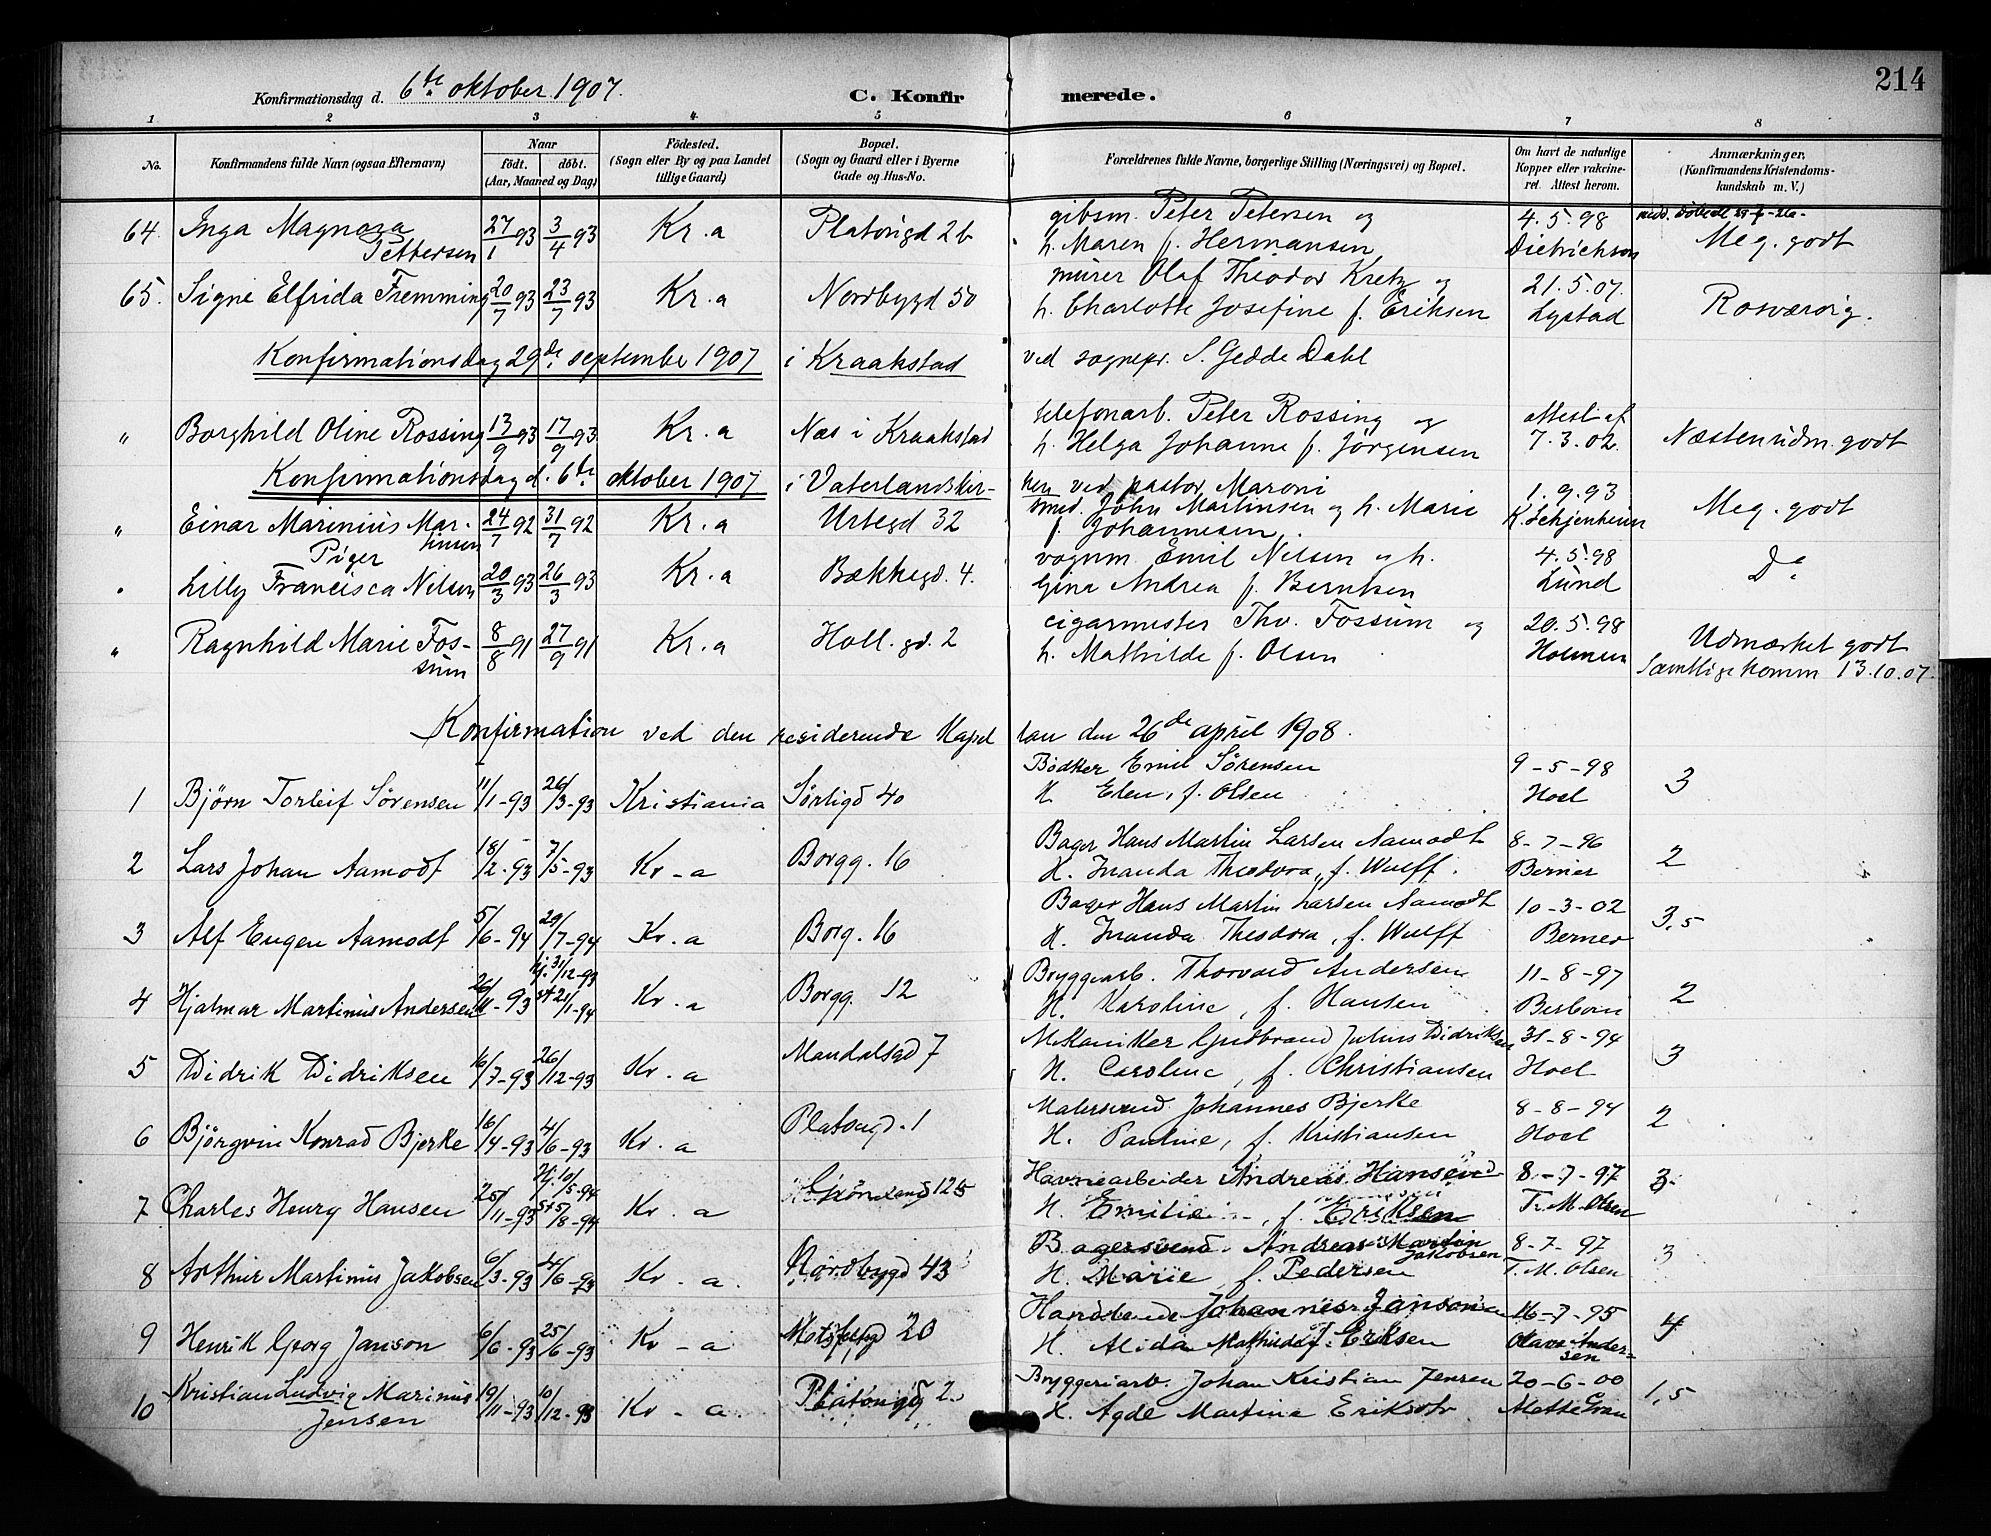 214
Konfirmationsdag d. 6te oktober 1907.
C. Konfirmerede.
1 2 3 4 5 6 7 8
No.
Konfirmandens fulde Navn (ogsaa Efternavn)
Naar
født. døbt.
(Aar, Maaned og Dag)
Fødested.
(Sogn eller By og paa Landet
tillige Gaard)
Bopæl.
(Sogn og Gaard eller i Byerne
Gade og Hus-No.
Forældrenes fulde Navne, borgerlige Stilling (Næringsvei) og Bopæl.
Om havt de naturlige
Kopper eller vakcine-
ret. Attest herom.
Anmærkninger,
(Konfirmandens Kristendoms-
kundskab m. V.)
64. Inga Magnora 27/1 93 3/4 93 Kr.a Platougd 2b gibsm. Peter Petersen og 4.5.98
Pettersen h. Maren f. Hermansen Dietrichson Meg. godt
65. Signe Elfrida Fremming 20/7 93 23/7 93 Kr.a Nordbygd 50 murer Olaf Theodor Kretz og 21.5.07.
h. Charlotte Josefine f. Eriksen Lystad Rosværdig.
Konfirmationsdag 29de september 1907 i Kraakstad ved sognepr. S. Gedde Dahl
" Borghild Oline Rossing 13/9 93 17/9 93 Kr.a Næs i Kraakstad telefonarb. Peter Rossing og attest af
h. Helga Johanne f. Jørgensen 7.3.02. Næsten udm. godt
Konfirmationsdag d. 6te oktober 1907 i Vaterlandskir-
ken ved pastor Maroni
" Einar Marinius Mar- 24/7 92 31/7 92 Kr.a Urtegd 32 smed. John Martinsen og h. Marie 1.9.93
tinsen f. Johannesen. K. Schjenheim Meg. godt
Piger
" Lilly Francisca Nilsen 20/3 93 26/3 93 Kr.a Bækkegd. 4. vognm. Emil Nilsen og h. 4.5.98
Gina Andrea f. Berntsen Lund Do
" Ragnhild Marie Fos- 8/8 91 27/9 91 Kr.a Holl. gd. 2 cigarmester Thv. Fossum og 20.5.98
sum h. Mathilde f. Olsen Holmen Udmærket godt
Samtlige komm 13.10.07.
Konfirmation ved den residerende Kapellan den 26de april 1908.
1 Bjørn Torleif Sørensen 11/1-93 26/3-93 Kristiania Sørligd 40 Bødker Emil Sørensen 9-5-98
H. Elen, f. Olsen Hoel 3
2 Lars Johan Aamodt 18/2-93 7/5-93 Kr-a Borgg. 16 Bager Hans Martin Larsen Aamodt 8-7-96
H. Inanda Theodora, f. Wulff. Berner 2
3 Alf Eugen Aamodt 5/6-94 29/7-94 Kr.a Borg. 16 Bager Hans Martin Larsen Aamodt 10-3-02
H. Inanda Theodora, f. Wulff Berner 3,5
4 Hjalmar Martinus Andersen 26/11-93 hj. 31/12-93 st 21/1-94 Kr.a Borgg. 12 Bryggeriarb. Thorvald Andersen 11-8-97
H. Karoline, f. Hansen 2
5 Didrik Didriksen 16/7-93 26/12-93 Kr.a Mandalsgd 7 Mekaniker Gudbrand Julius Didriksen 31-8-94
H. Caroline, f. Christiansen Hoel 3
6 Bjørgvin Konrad Bjerke 16/4-93 4/6-93 Kr.a Platougd. 1 Malersvend Johannes Bjerke 8-8-94
H. Pauline, f. Kristiansen Hoel 2
7 Charles Henry Hansen 25/11-93 Hj. 10/5-94 st 5/8-94 Kr.a Grønland 125 Havnearbeider Andreas Hansen 8-7-97
H. Emilie, f. Eriksen T. M. Olsen 3
8 Arthur Martinus Jakobsen 6/3-93 4/6-93 Kr-a. Nordbygd 43 Bagersvend Andreas Martin Jakobsen 8-7-97
H. Marie, f. Pedersen T. M. Olsen 3
9 Henrik Georg Janson 6/6-93 25/6-93 Kr-a Motzfeltgd 20 Handlende Johannes Janson 16-7-95
H. Alida Mathilde f. Eriksen Olava Ander-
sen 4
10 Kristian Ludvig Marinus 19/11-93 10/12-93 Kr-a. Platougd 2 Bryggeriarb. Johan Kristian Jensen 20-6-00
Jensen H. Agde Martina Eriksdtr. Mette Gran 1,5